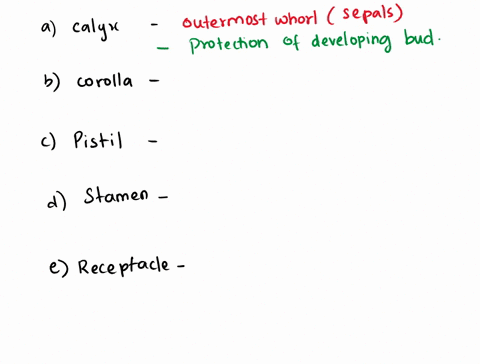 a) Calyx - outermost whorl ( sepals)
- Protection of developing bud.
b) Corolla -
c) Pistil -
d) Stamen -
e) Receptacle -